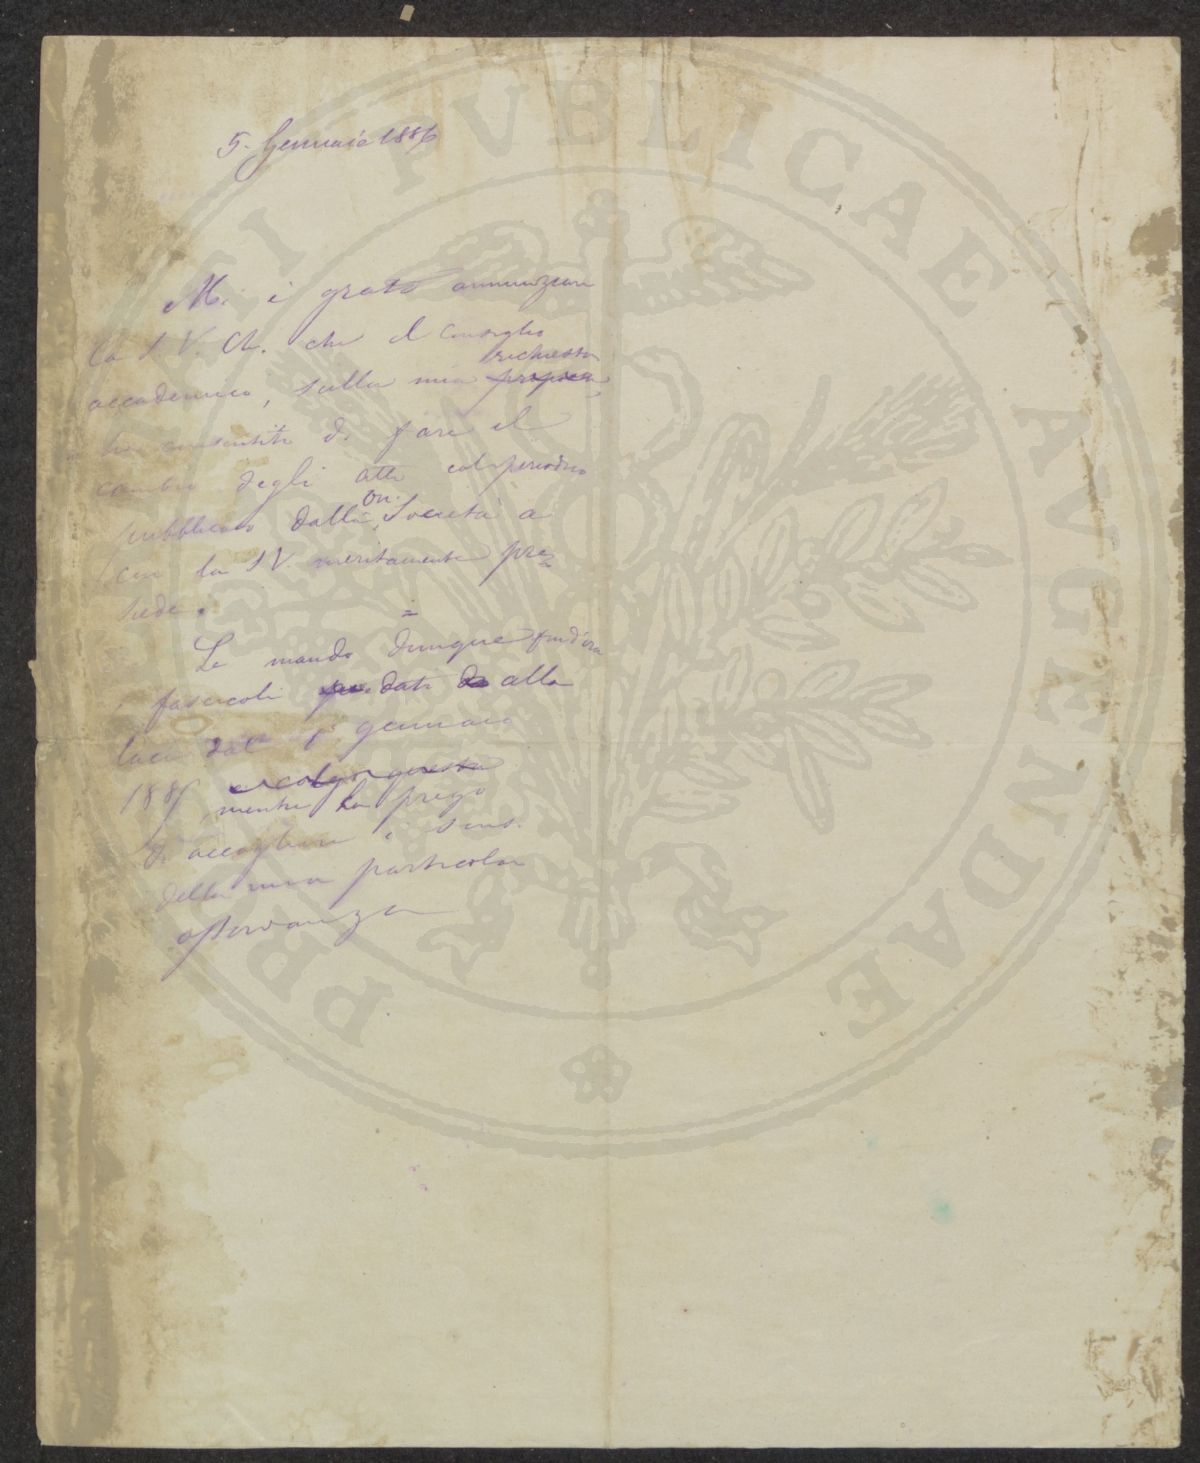 5. Gennaio 1886
Mi è grato annunziare
la S. V. Ch. che il Consiglio
accademico, sulla mia proposta richiesta
ha consentito di fare il
cambio degli atti col periodico
pubblicato dalla on. Società a
cui la S V. meritamente pre=
siede.
Le mando dunque fin d'ora
i fascicoli dati alla
luce dal gennaio
188 mentre La prego
di accogliere i sens.
della mia particolar
osservanza
PROVEHENDAE